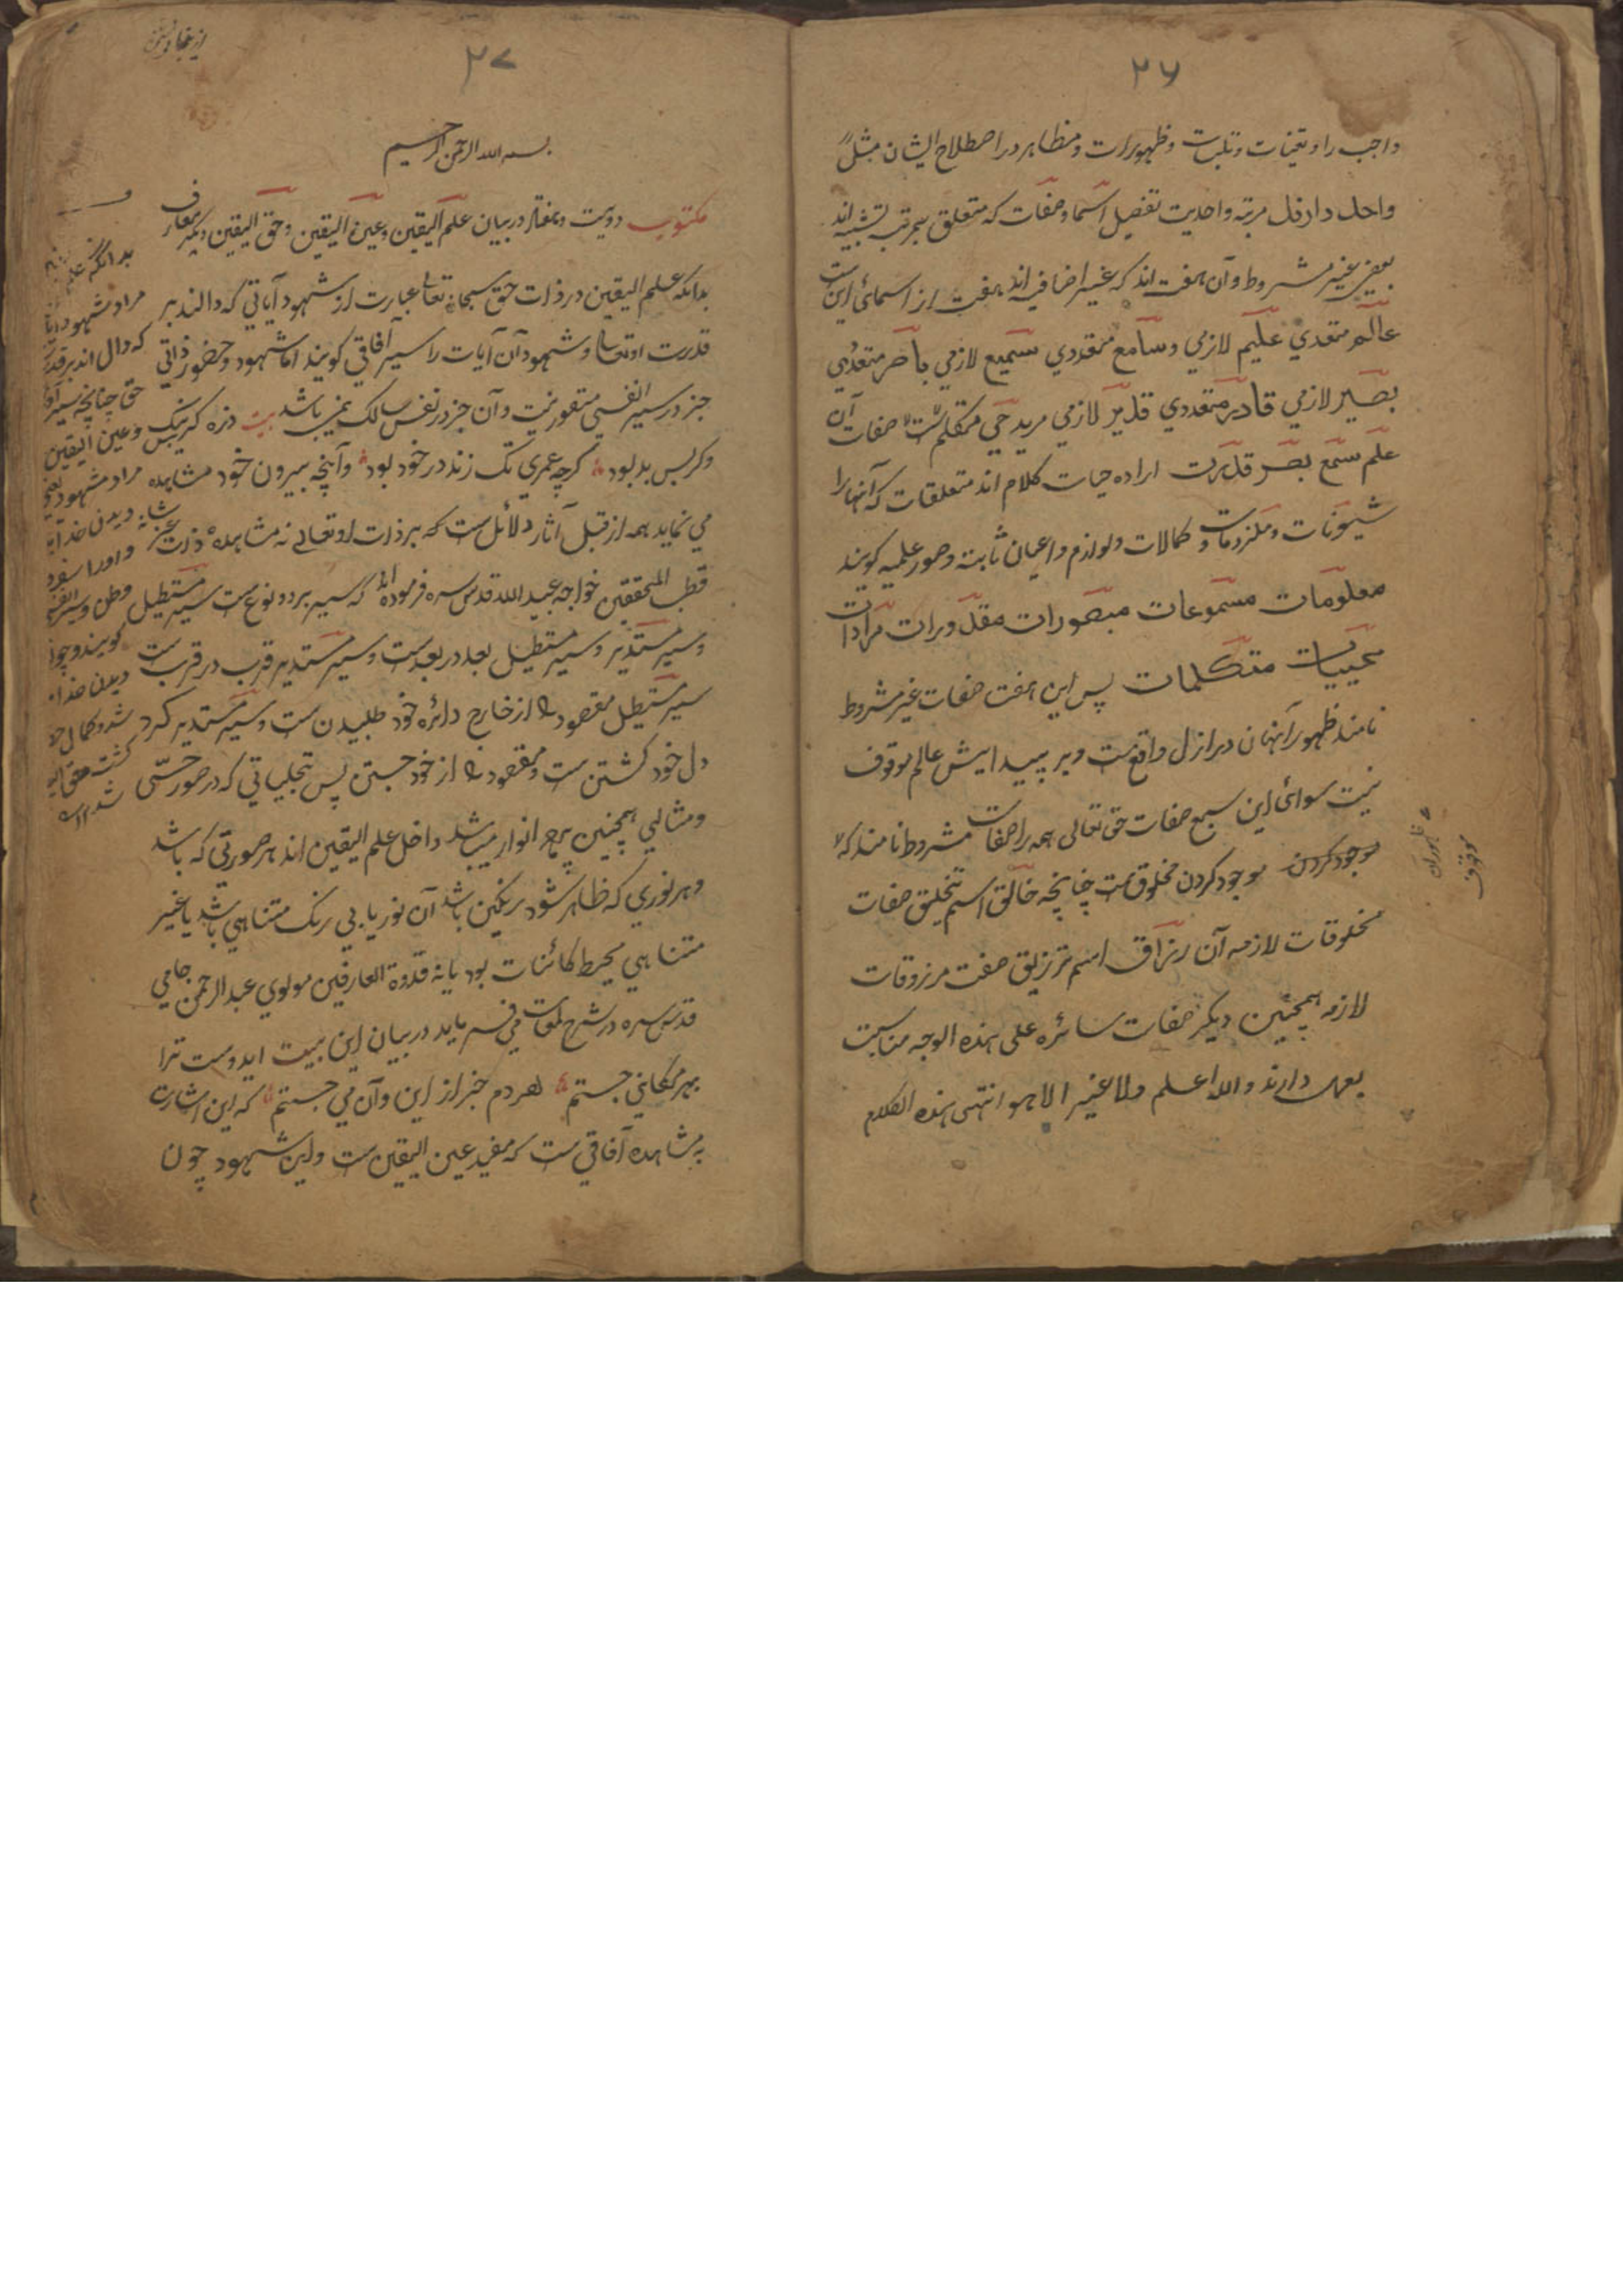 ۲۶
واجب را و تعینات و تلبسات و ظهورات و مظاهر در اصطلاح ایشان مثلاً
واحل دارفل مرتبه واحدیت تفصیل اسما و صفات که متعلق بمرتبه تشبیه اند
بعضی غیر مشروط و آن هفت اند که غیر اضافیه اند هفت از اسمائی این ست
عالم متعدي علیم لازمي و سامع متعددي سمیع لازمي باصر متعدي
بصیر لازمي قادر متعددي قدیر لازمي مرید حي متکلم ست صفات آن
علم سمع بصر قدرت اراده حیات کلام اند متعلقات که آنها را
شیونات و ملزومات و کمالات و لوازم و اعیان ثابته و صور علمیه کویند
معلومات مسموعات مبصورات مقدورات مرادات
محییات متکلمات پس این هفت صفات غیر مشروط
نامند ظهور آنها ن در ازل واقع ست و بر پیدایش عالم موقوف
نیست سوائ این سبع صفات حق تعالی همه را صفات مشروط نامند که
موجود کردن موجود کردن مخلوق ست چنانچه خالق اسم تخلیق صفات
مخلوقات لازمه آن رزاق اسم ترزیق صفت مرزوقات
لازمه همچنین دیکر صفات سائره علی هذه الوجه مناسبت
بعهد دارند والله اعلم ولا غیر الا هو انتهی هذه الکلام
موقوف
۲۷
بسم الله الرحمن الرحیم
مکتوب دویست و هفتاد در بیان علم الیقین و عین الیقین و حق الیقین دیکر معارف
بدانکه علم الیقین در ذات حق سبحانه تعالی عبارت از شهود آیاتي که دالند بر
قدرت او تعالی و شهود آن آیات را سیر آفاقي کویند اما شهود و حضور ذاتي
جز در سیر انفسي متصور نیست و آن جز در نفس سالک نمی باشد بیت ذره کر بس نیک
و کر بس بد بود کرچه عمري تک زند در خود بود و آنچه بیرون خود مشاهده
مي نماید همه از قبل آثار و دلائل ست که بر ذات او تعالی نه مشاهده ذات عز شانه
قطب المحققین خواجه عبید الله قدس سره فرموده اند که سیر بر دو نوع ست سیر مستطیل
و سیر مستدیر و سیر مستطیل بعد در بعد ست و سیر مستدیر قرب در قرب ست
سیر مستطیل مقصود را از خارج دائره خود طلبیدن ست و سیر مستدیر کرد
دل خود کشتن ست و مقصود را از خود جستن پس تجلیاتي که در صور حسّی
و مثالي همچنین بر انوار میباشد داخل علم الیقین اند هر صورتي که باشد
و هر نوري که ظاهر شود رنکین باشد آن نور یا بي رنک متناهي باشد یا غیر
متناهي محیط کائنات بود یا نه قدوة العارفین مولوي عبد الرحمن جامي
قدس سره در شرح لمعات مي فرماید در بیان این بیت ایدوست ترا
بهر مکاني جستم هر دم خبر از این و آن مي جستم که این اشارت
به مشاهده آفاقي ست که مفید عین الیقین ست و این شهود چون
بدانکه علم
مراد شهود آیات
که دال اند بر قدرت
حق چنانچه سیر آفا
و عین الیقین
مراد شهود یعنی
دیدن خدا
و او را سفر در
وطن و سیر انفسی
کویند و چون
دیدن خدا
شد و کمال
کشت حق الی
شد ۱۲